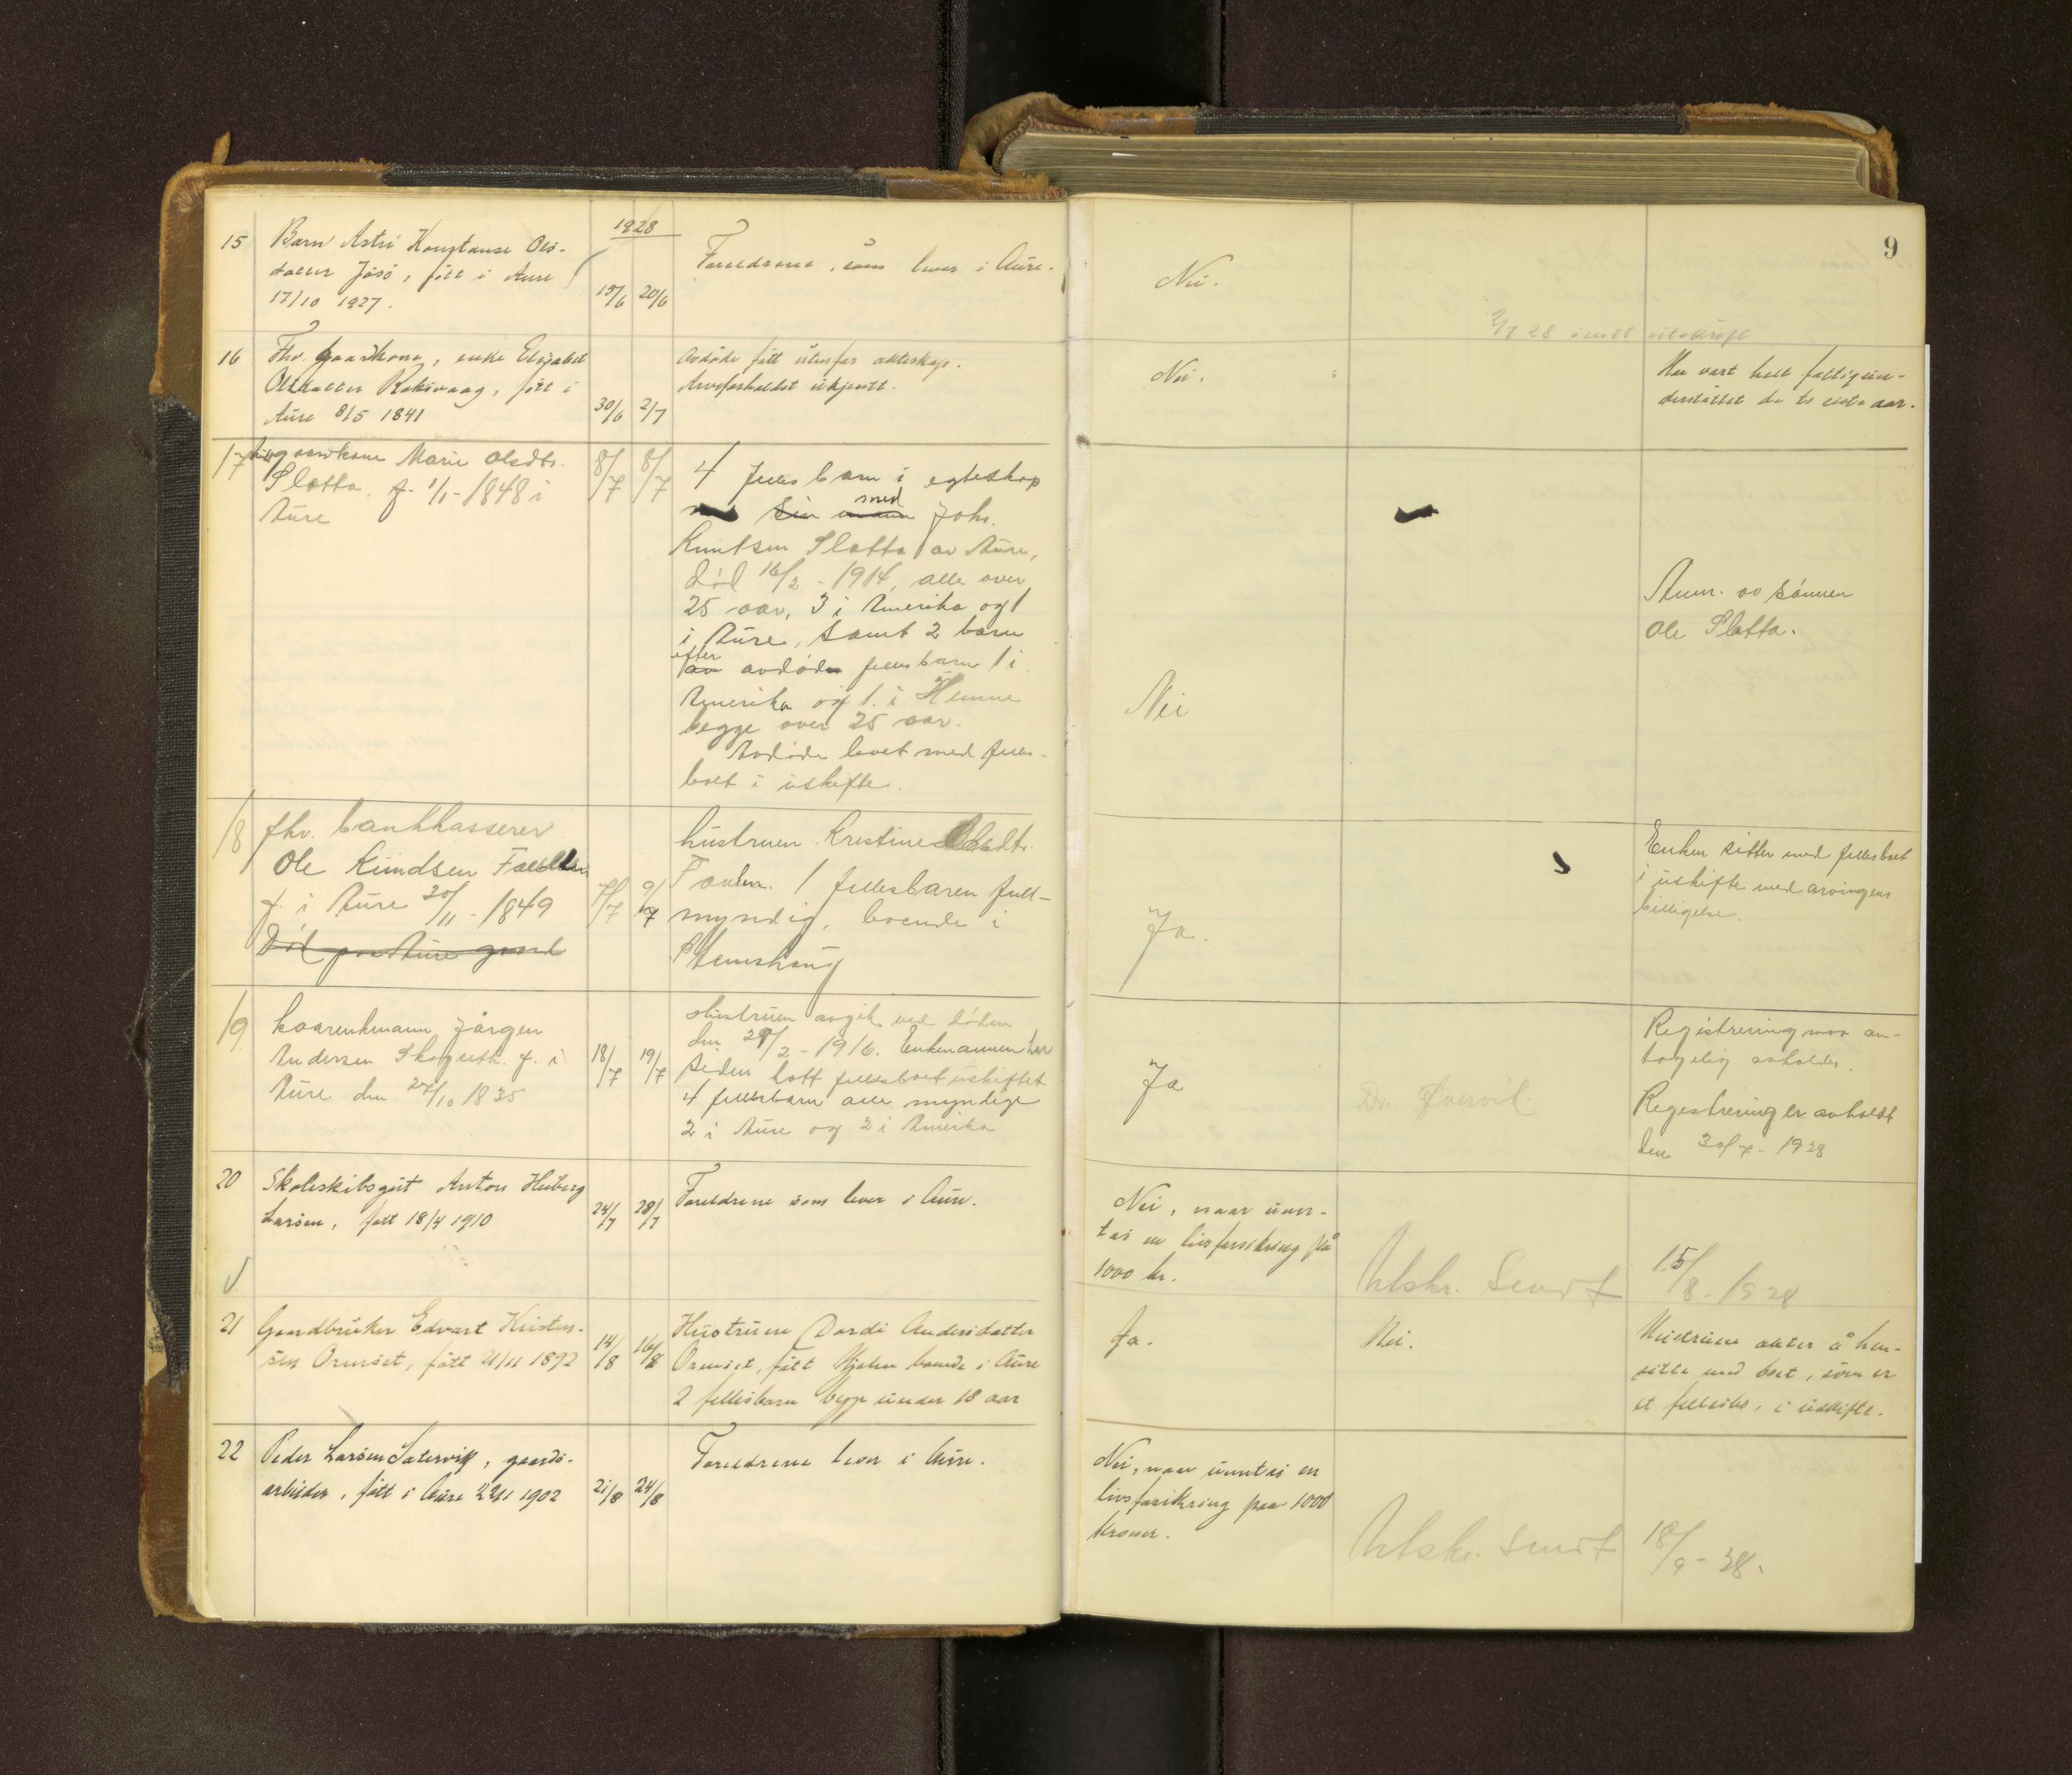 9
1928
15 Barn Astri Konstanse Ols-
datter Jøsø, født i Aure
17/10 1927.
15/6 20/6
Foreldrene, som lever i Aure.
Nei.
2/7 28 sendt utskrift
16 Fhv. gaardkone, enke Elisabet
Olsdatter Roksvaag, født i
Aure 8/5 1841
30/6 2/7
Avdøde født utenfor ekteskap.
Arveforholdet ukjent.
Nei.
Hu vart helt fattigun-
derstøttet de to siste aar.
17 gaardkone Marie Olsdtr.
Slatta, f. 1/1-1848 i
Aure
8/7 8/7
4 fellesbarn i egteskap
med
sin mann Johs.
Knutsen Slatta av Aure,
død 16/2 - 1914, alle over
25 aar, 3 i Amerika og 1
i Aure, samt 2 barn
efter
av avdøde fellesbarn 1 i
Amerika og 1 i Hemne
begge over 25 aar.
Avdøde levet med felles-
boet i uskifte.
Nei
Anm. av sønnen
Ole Slatta.
18 fhv. bankkasserer
Ole Knudsen
f. i Aure 20/11 - 1849
Død paa Aure gaard
7/7 9/7
hustruen Kristine Olsdtr.
1 fellesbaren full-
myndig, boende i
Stemshaug
Ja.
Enken sitter med fellesboet
i uskifte med arvingens
billigelse.
19 kaarenkmann Jørgen
Andersen f. i
Aure den 27/10 1835
18/7 19/7
Hustruen avgik ved døden
den 29/2 - 1916. Enkemannen har
siden hatt fellesboet uskiftet
4 fellesbarn alle myndige
2 i Aure og 2 i Amerika
Ja
Dr.
Registrering maa an-
tagelig avholdes.
Registrering er avholdt
den 30/7 - 1928
20 Skoleskibsgut Anton Heiberg
Larsen, født 18/4 1910
24/7 28/7
Foreldrene som lever i Aure.
Nei, naar unn-
tas en livsforsikring på
1000 kr.
Utskr. sendt 15/8 - 1928
21 Gaardbruker Edvart Kristen-
sen Ormset, født 21/11 1892
14/8 16/8
Hustruen Dordi Andersdatter
Ormset, født Mjelen boende i Aure
2 fellesbarn begge under 18 aar
Ja.
Nei.
Hustruen akter å hen-
sitte med boet, som er
et fellesbo, i uskifte.
22 Peder Larsen Satervik, gaards-
arbeider, født i Aure 1902
21/8 24/8
Foreldrene lever i Aure.
Nei, naar unntas en
livsforsikring paa 1000
kroner.
Utskr. sendt 18/9 - 28.